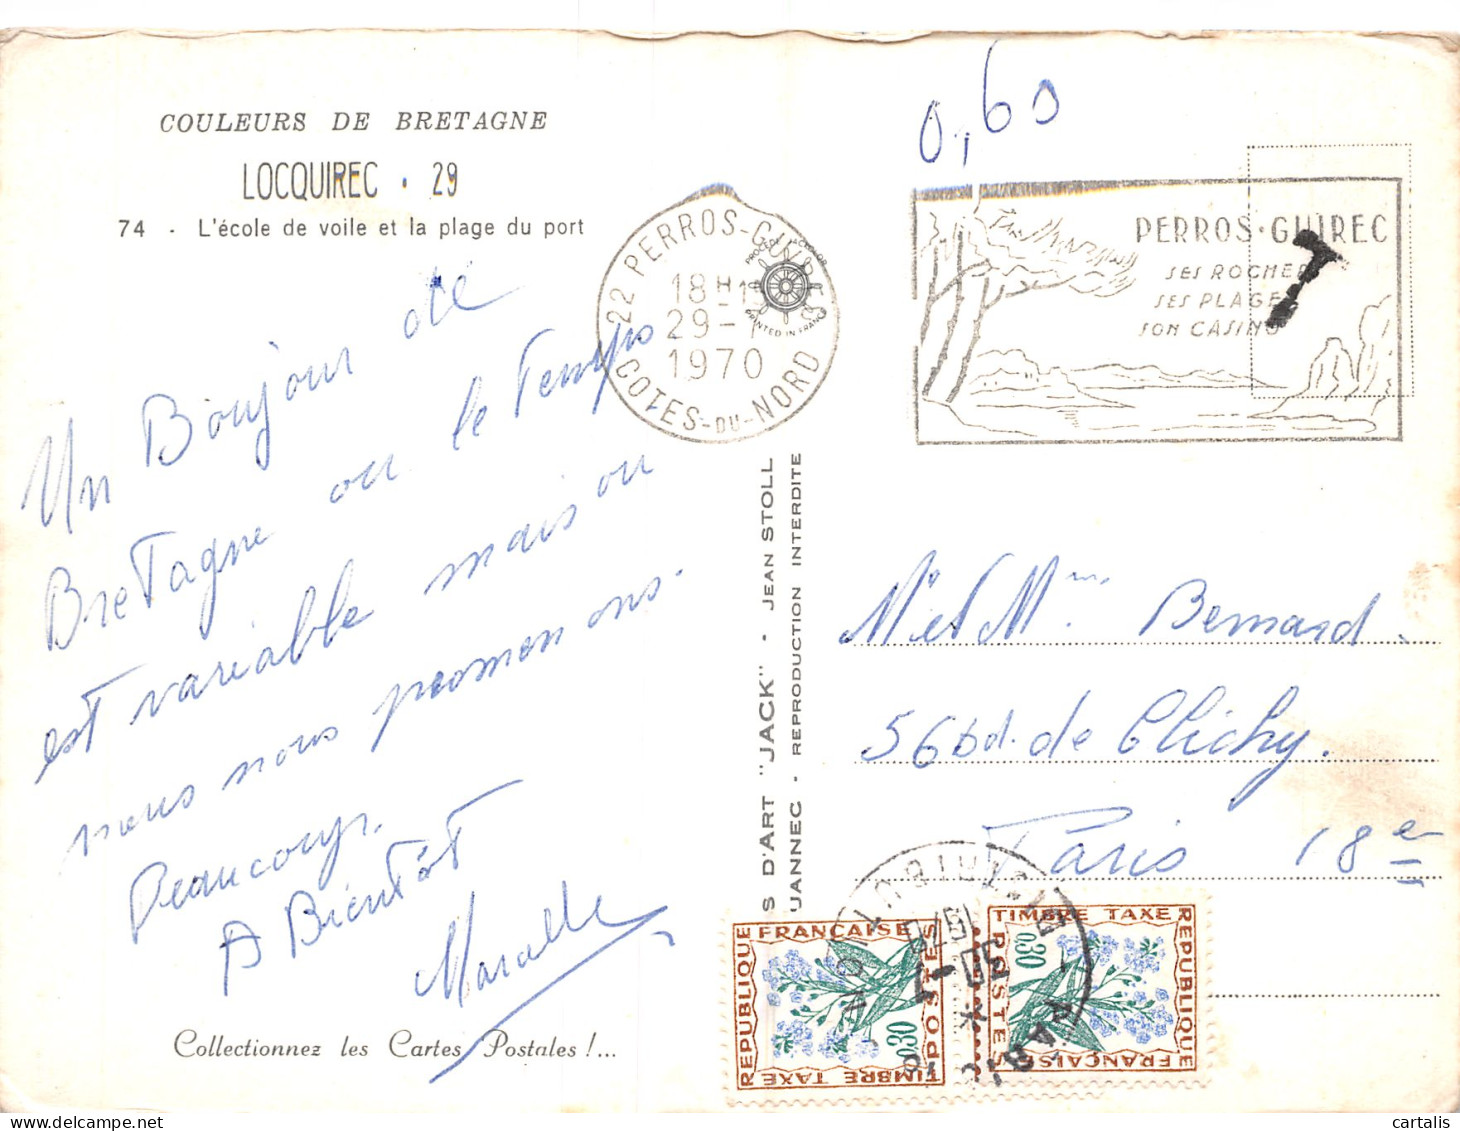 COULEURS DE BRETAGNE
LOCQUIREC · 29
74 - L'école de voile et la plage du port
Un Bonjour de
Bretagne ou le Temps
est variable mais ou
nous nous promenons.
Beaucoup.
A Bientôt
Collectionnez les Cartes Postales !...
22 PERROS-GUIREC
18H
29-7
1970
COTES-DU-NORD
PRINTED IN FRANCE
0,60
PERROS·GUIREC
SES ROCHERS
SES PLAGES
SON CASINO
T
S D'ART "JACK" - JEAN STOLL
UANNEC - REPRODUCTION INTERDITE
Mr et Mme Bernard.
56 bd. de Clichy.
Paris 18e
REPUBLIQUE FRANÇAISE
POSTES
0,30
TIMBRE TAXE
TIMBRE TAXE
REPUBLIQUE
FRANÇAISE
POSTES
0,30
DISTRIBUTION
30-7
1970
PARIS
cartalis